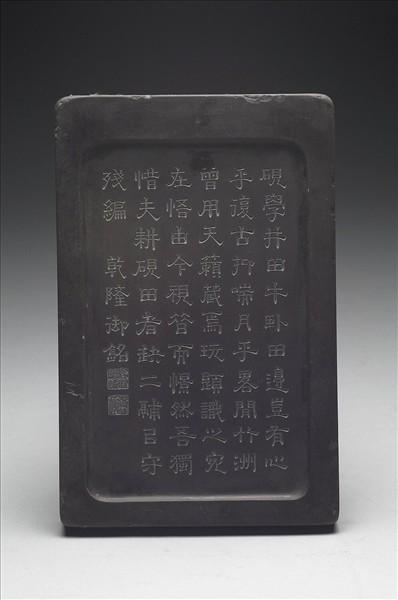 硯學井田牛卧田邊豈有心
乎復古抑喘月乎畧聞竹洲
曾用天籟藏焉玩題識之宛
在悟由今視昔而憬然吾獨
惜夫耕硯田者守
殘編 乾隆御銘